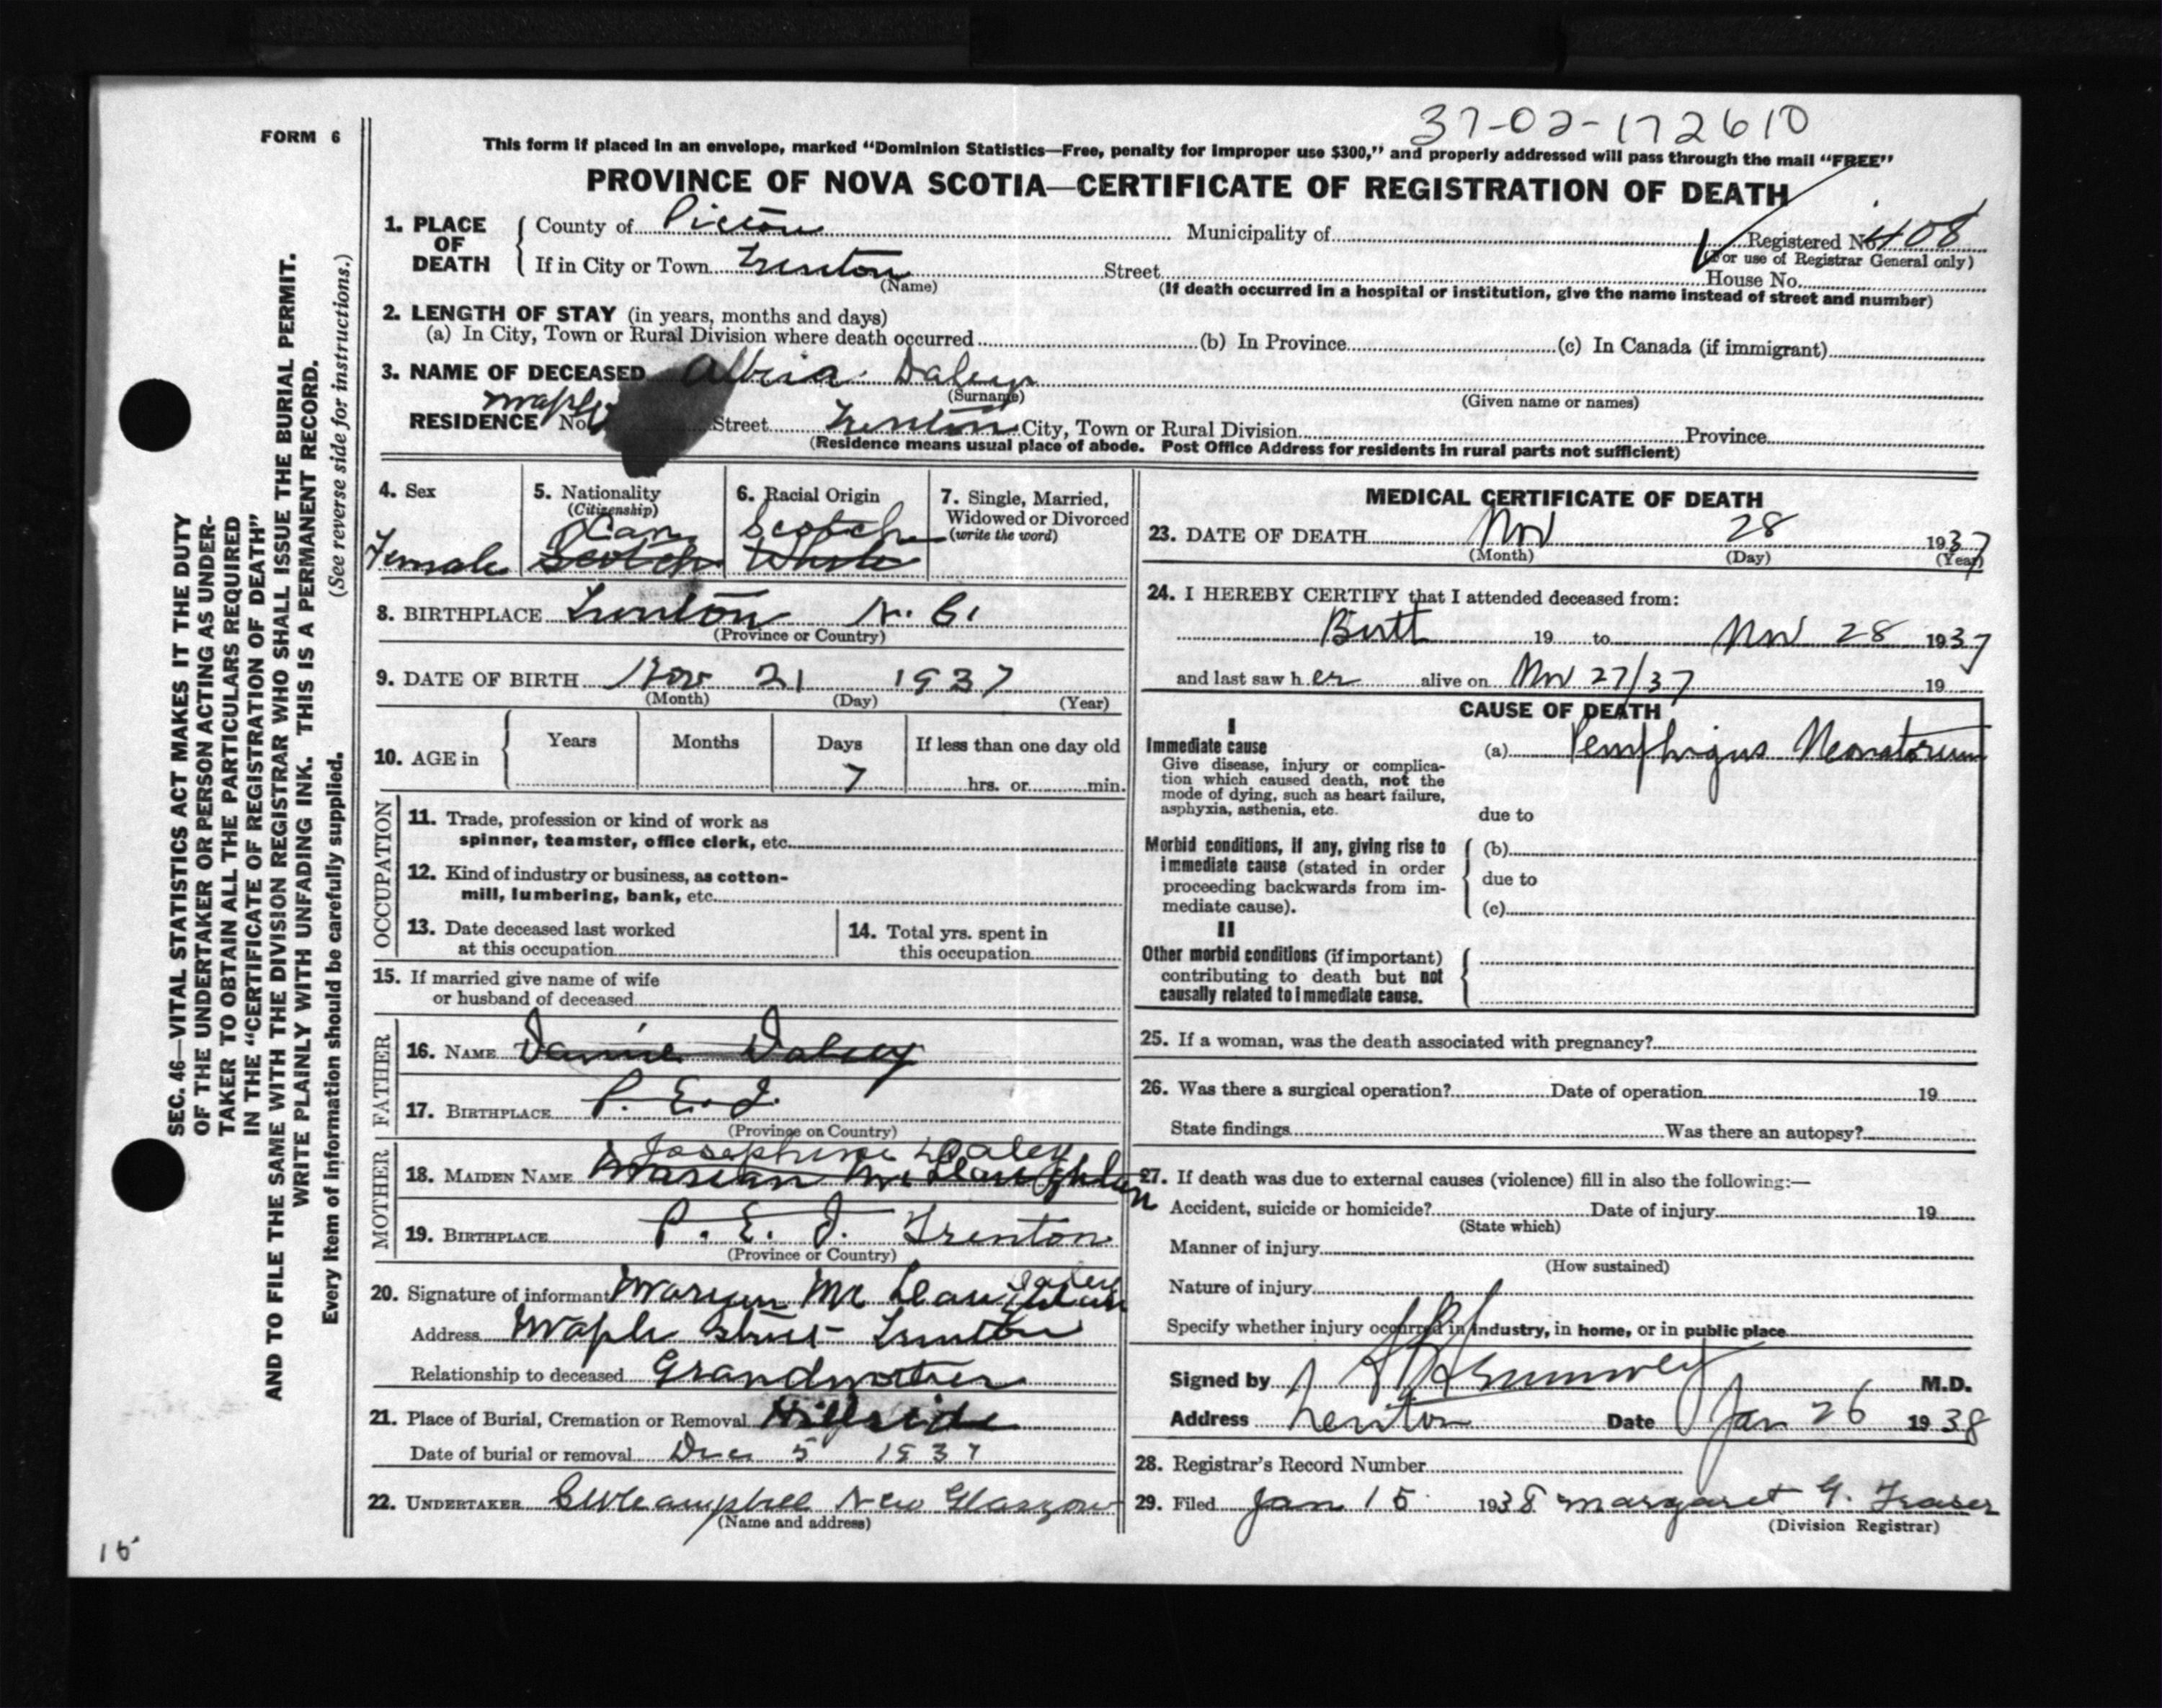 37-02-172610
FORM 6
This form if placed in an envelope, marked "Dominion Statistics—Free, penalty for improper use $300," and properly addressed will pass through the mail "FREE"
PROVINCE OF NOVA SCOTIA—CERTIFICATE OF REGISTRATION OF DEATH
1. PLACE OF DEATH
County of Pictou Municipality of Registered No. 408
(For use of Registrar General only)
If in City or Town Trenton Street House No.
(Name) (If death occurred in a hospital or institution, give the name instead of street and number)
2. LENGTH OF STAY (in years, months and days)
(a) In City, Town or Rural Division where death occurred (b) In Province (c) In Canada (if immigrant)
3. NAME OF DECEASED Daley
(Surname) (Given name or names)
Maple
RESIDENCE No. Street Trenton City, Town or Rural Division Province
(Residence means usual place of abode. Post Office Address for residents in rural parts not sufficient)
4. Sex
Female
5. Nationality
(Citizenship)
Can
Scotch
6. Racial Origin
Scotch
White
7. Single, Married,
Widowed or Divorced
(write the word)
8. BIRTHPLACE Trenton N.
(Province or Country)
9. DATE OF BIRTH Nov 21 1937
(Month) (Day) (Year)
10. AGE in
Years Months Days If less than one day old
7 hrs. or min.
OCCUPATION
11. Trade, profession or kind of work as
spinner, teamster, office clerk, etc.
12. Kind of industry or business, as cotton-
mill, lumbering, bank, etc.
13. Date deceased last worked
at this occupation
14. Total yrs. spent in
this occupation
15. If married give name of wife
or husband of deceased
FATHER
16. NAME Daley
17. BIRTHPLACE P. E. I.
(Province or Country)
MOTHER
Josephine Daley
18. MAIDEN NAME Marian McLaughlan
19. BIRTHPLACE P. E. I. Trenton
(Province or Country)
Daley
20. Signature of informant
Address Maple Street Trenton
Relationship to deceased Grandmother
21. Place of Burial, Cremation or Removal Hillside
Date of burial or removal Dec 5 1937
22. UNDERTAKER Campbell New Glasgow
(Name and address)
MEDICAL CERTIFICATE OF DEATH
23. DATE OF DEATH Nov 28 1937
(Month) (Day) (Year)
24. I HEREBY CERTIFY that I attended deceased from:
Birth 19 to Nov 28 1937
and last saw her alive on Nov 27/37 19
CAUSE OF DEATH
I
Immediate cause
Give disease, injury or complica-
tion which caused death, not the
mode of dying, such as heart failure,
asphyxia, asthenia, etc.
(a) Pemphigus Neonatorum
due to
Morbid conditions, if any, giving rise to
immediate cause (stated in order
proceeding backwards from im-
mediate cause).
(b)
due to
(c)
II
Other morbid conditions (if important)
contributing to death but not
causally related to immediate cause.
25. If a woman, was the death associated with pregnancy?
26. Was there a surgical operation? Date of operation 19
State findings Was there an autopsy?
27. If death was due to external causes (violence) fill in also the following:—
Accident, suicide or homicide? Date of injury 19
(State which)
Manner of injury
(How sustained)
Nature of injury
Specify whether injury occurred in industry, in home, or in public place
Signed by M.D.
Address Trenton Date Jan 26 1938
28. Registrar's Record Number
29. Filed Jan 15 1938 Margaret G. Fraser
(Division Registrar)
SEC. 46—VITAL STATISTICS ACT MAKES IT THE DUTY
OF THE UNDERTAKER OR PERSON ACTING AS UNDER-
TAKER TO OBTAIN ALL THE PARTICULARS REQUIRED
IN THE "CERTIFICATE OF REGISTRATION OF DEATH"
AND TO FILE THE SAME WITH THE DIVISION REGISTRAR WHO SHALL ISSUE THE BURIAL PERMIT.
WRITE PLAINLY WITH UNFADING INK. THIS IS A PERMANENT RECORD.
Every item of information should be carefully supplied. (See reverse side for instructions.)
15